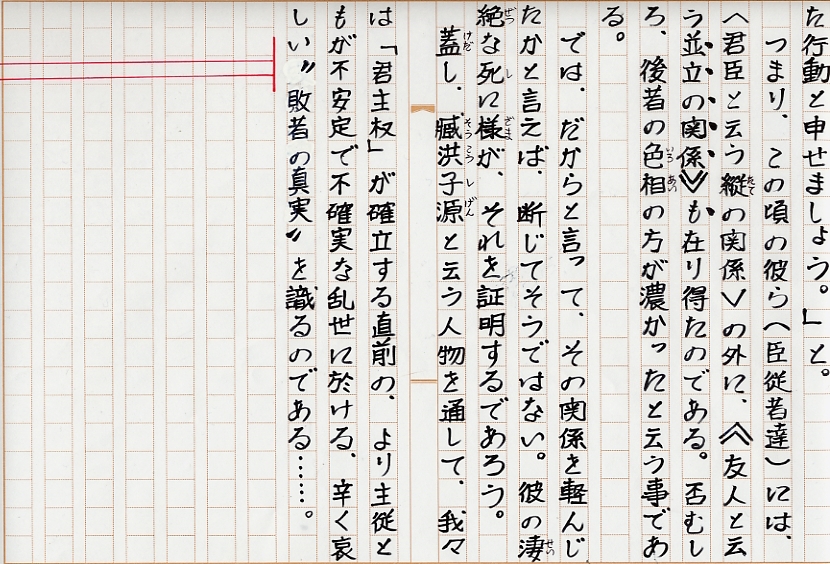 た行動と申せましょう。」と。
つまり、この頃の彼ら(臣従者達)には、
〈君臣と云う縦の関係〉の外に、《友人と云
う並立の関係》も在り得たのである。否むし
ろ、後者の色相の方が濃かったと云う事であ
る。
では、だからと言って、その関係を軽んじ
たかと言えば、断じてそうではない。彼の凄
絶な死に様が、それを証明するであろう。
蓋し、臧洪子源と云う人物を通して、我々
は「君主权」が確立する直前の、より主従と
もが不安定で不確実な乱世に於ける、辛く哀
しい〝敗者の真実〟を識るのである……。